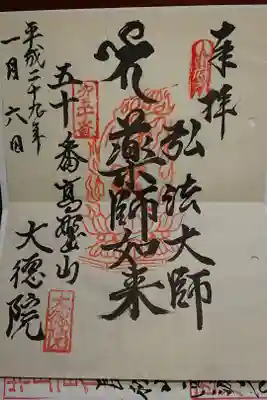 奉拝
弘法大師
薬師如来
五十番高野山
大德院
平成二十九年
一月六日